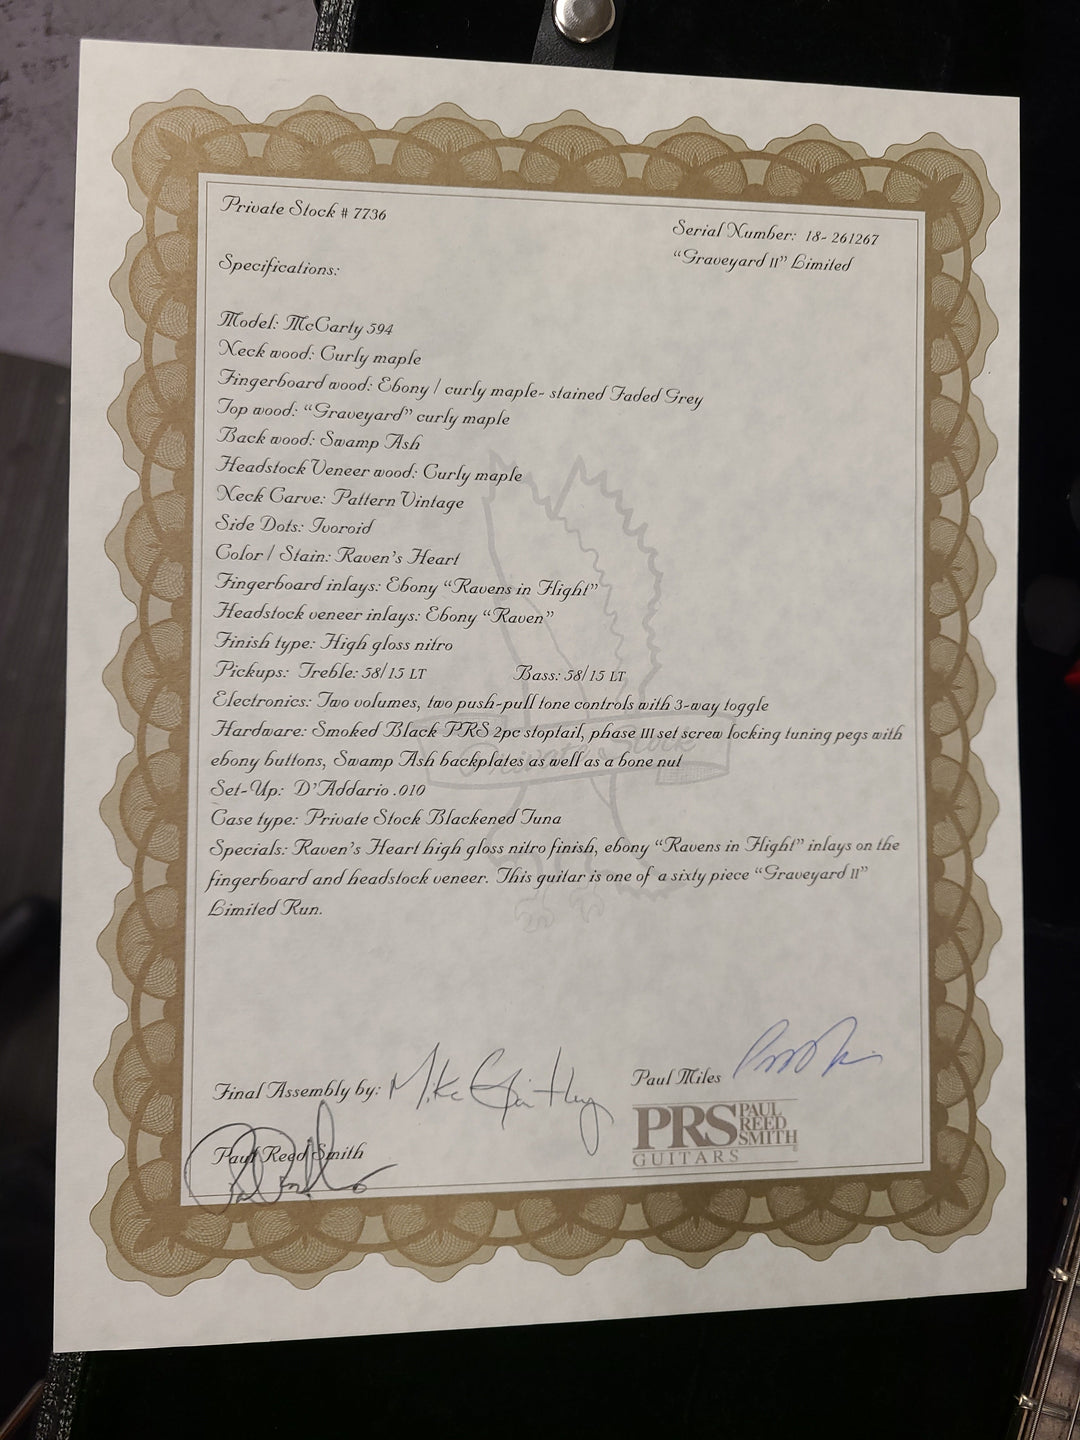 Private Stock # 7736
Serial Number: 18- 261267
"Graveyard II" Limited
Specifications:
Model: McCarty 594
Neck wood: Curly maple
Fingerboard wood: Ebony / curly maple- stained Faded Grey
Top wood: "Graveyard" curly maple
Back wood: Swamp Ash
Headstock Veneer wood: Curly maple
Neck Carve: Pattern Vintage
Side Dots: Ivoroid
Color / Stain: Raven's Heart
Fingerboard inlays: Ebony "Ravens in Flight"
Headstock veneer inlays: Ebony "Raven"
Finish type: High gloss nitro
Pickups: Treble: 58/15 LT Bass: 58/15 LT
Electronics: Two volumes, two push-pull tone controls with 3-way toggle
Hardware: Smoked Black PRS 2pc stoptail, phase III set screw locking tuning pegs with
ebony buttons, Swamp Ash backplates as well as a bone nut
Private Stock
Set-Up: D'Addario .010
Case type: Private Stock Blackened Tuna
Specials: Raven's Heart high gloss nitro finish, ebony "Ravens in Flight" inlays on the
fingerboard and headstock veneer. This guitar is one of a sixty piece "Graveyard II"
Limited Run.
Final Assembly by: Mike
Paul Miles
Paul Reed Smith
PRS PAUL REED SMITH
GUITARS